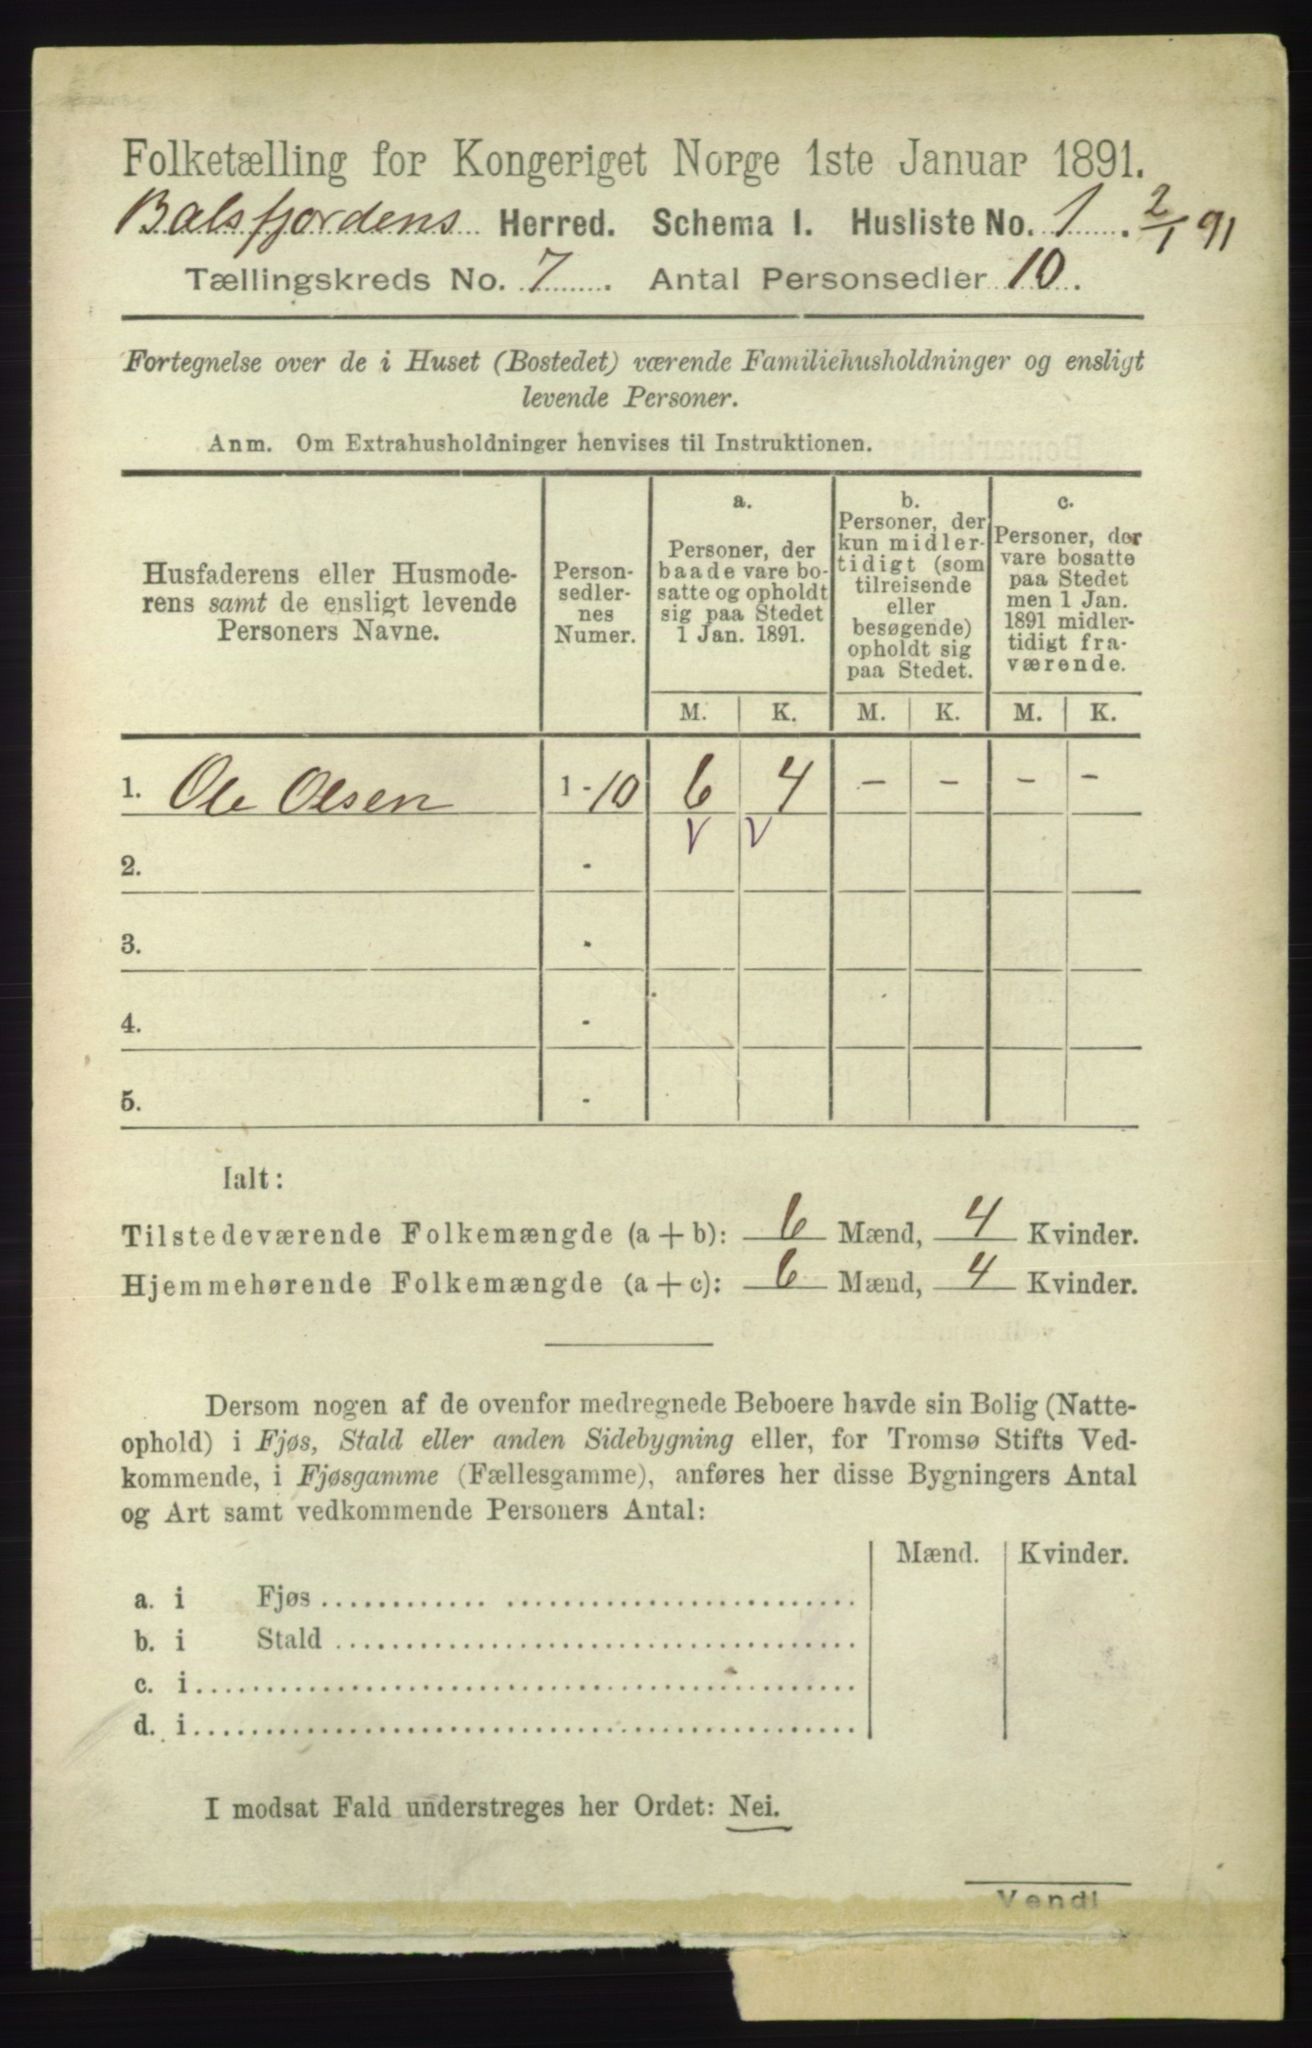 Folketælling for Kongeriget Norge 1ste Januar 1891.
Balsfjordens Herred. Schema I. Husliste No. 1. 2/1 91
Tællingskreds No. 7. Antal Personsedler 10.
Fortegnelse over de i Huset (Bostedet) værende Familiehusholdninger og ensligt
levende Personer.
Anm. Om Extrahusholdninger henvises til Instruktionen.
Husfaderens eller Husmode-
rens samt de ensligt levende
Personers Navne.
Person-
sedler-
nes
Numer.
a.
Personer, der
baade vare bo-
satte og opholdt
sig paa Stedet
1 Jan. 1891.
b.
Personer, der
kun midler-
tidigt (som
tilreisende
eller
besøgende)
opholdt sig
paa Stedet.
c.
Personer, der
vare bosatte
paa Stedet
men 1 Jan.
1891 midler-
tidigt fra-
værende.
M. K. M. K. M. K.
1. Ole Olsen 1 - 10 6 4 - - - -
V V
2. -
3. -
4. -
5. -
Ialt:
Tilstedeværende Folkemængde (a + b): 6 Mænd, 4 Kvinder.
Hjemmehørende Folkemængde (a + c): 6 Mænd, 4 Kvinder.
Dersom nogen af de ovenfor medregnede Beboere havde sin Bolig (Natte-
ophold) i Fjøs, Stald eller anden Sidebygning eller, for Tromsø Stifts Ved-
kommende, i Fjøsgamme (Fællesgamme), anføres her disse Bygningers Antal
og Art samt vedkommende Personers Antal:
Mænd. Kvinder.
a. i Fjøs
b. i Stald
c. i
d. i
I modsat Fald understreges her Ordet: Nei.
Vend!